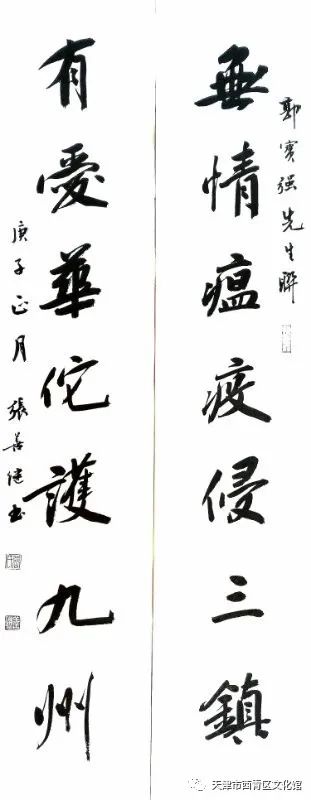 郭寳强先生聯
無情瘟疫侵三鎮
有愛華佗護九州
庚子正月 張善继书
天津市西青区文化馆